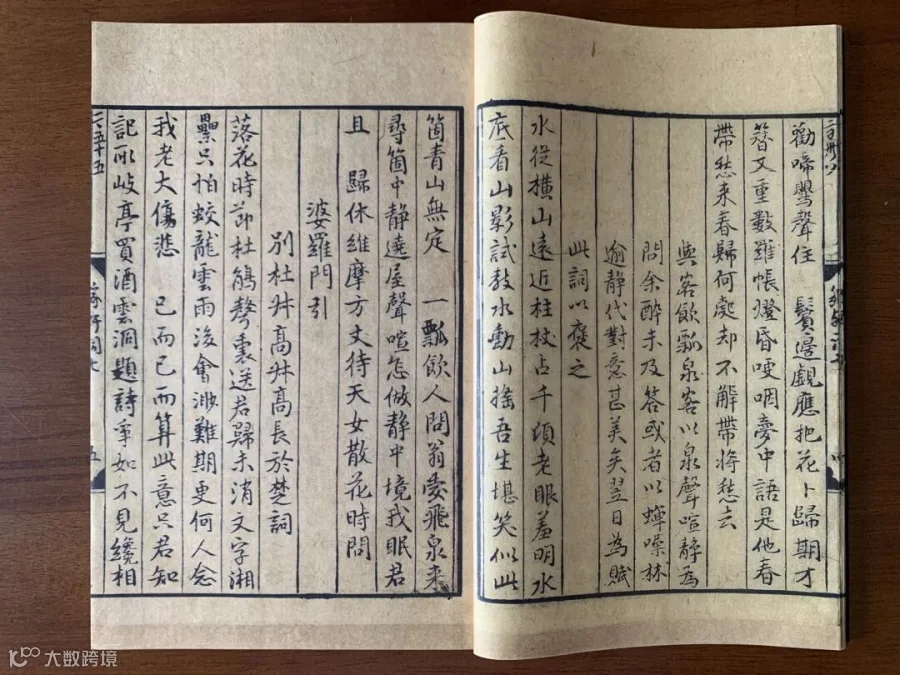 勸啼鶯聲住　鬢邊覷應把花卜歸期才
簪又重數羅帳燈昏哽咽夢中語是他春
帶愁来春歸何處却不解帶將愁去
與客飲瓢泉客以泉聲喧静為
問余醉未及答或者以蟬噪林
逾静代對意甚美矣翌日為賦
此詞以褒之
水從横山遠近柱杖占千頃老眼羞明水
底看山影試教水動山摇吾生堪笑似此
箇青山無定　一瓢飲人問翁愛飛泉来
尋箇中静遶屋聲喧怎做静中境我眠君
且　歸休維摩方丈待天女散花時問
婆羅門引
别杜叔高叔高長於楚詞
落花時節杜鵑聲裏送君歸未消文字湘
纍只怕蛟龍雲雨後會渺難期更何人念
我老大傷悲　已而已而算此意只君知
記取岐亭買酒雲洞題詩争如不見纔相
二五十五
五
大数跨境